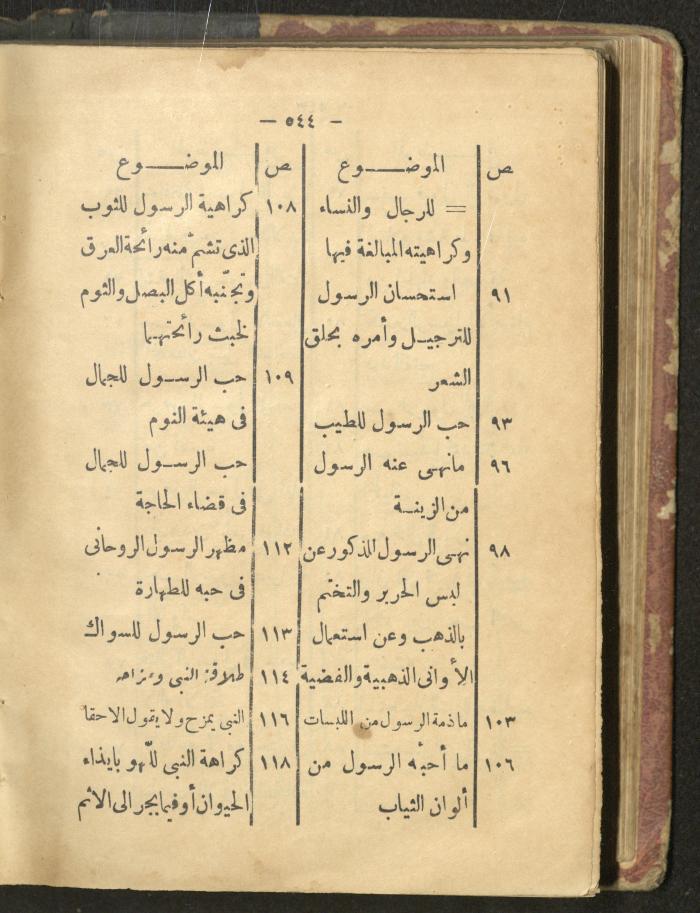 — ٥٤٤ —
ص الموضـــوع
= للرجال والنساء
وكراهيته المبالغة فيها
٩١ استحسان الرسول
للترجيـل وأمره بحلق
الشعر
٩٣ حب الرسول للطيب
٩٦ مانهـى عنه الرسول
من الزينـة
٩٨ نهـى الرسول الذكور عن
لبس الحرير والتختّم
بالذهب وعن استعمال
الأوانى الذهبية والفضية
١٠٣ ماذمة الرسول من اللبسات
١٠٦ ما أحبّه الرسول من
ألوان الثياب
ص الموضـــوع
١٠٨ كراهية الرسول للثوب
الذى تشمّ منه رائحة العرق
وتجنّبه أكل البصل والثوم
لخبث رائحتهـما
١٠٩ حب الرسـول للجمال
فى هيئة النوم
حب الرسـول للجمال
فى قضاء الحاجة
١١٢ مظهر الرسول الروحانى
فى حبه للطهارة
١١٣ حب الرسول للسواك
١١٤ طلاقة النبى ومزاحه
١١٦ النبى يمزح ولا يقول الاحقا
١١٨ كراهة النبى للّهو بايذاء
الحيوان أو فيما يجر الى الاثم